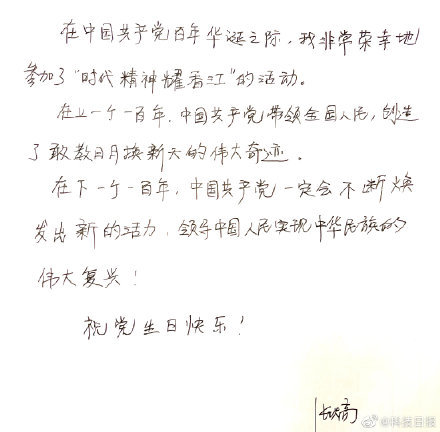 在中国共产党百年华诞之际，我非常荣幸地
参加了“时代精神耀香江”的活动。
在上一个一百年，中国共产党带领全国人民，创造
了敢教日月换新天的伟大奇迹。
在下一个一百年，中国共产党一定会不断焕
发出新的活力，领导中国人民实现中华民族的
伟大复兴！
祝党生日快乐！
@科技日报